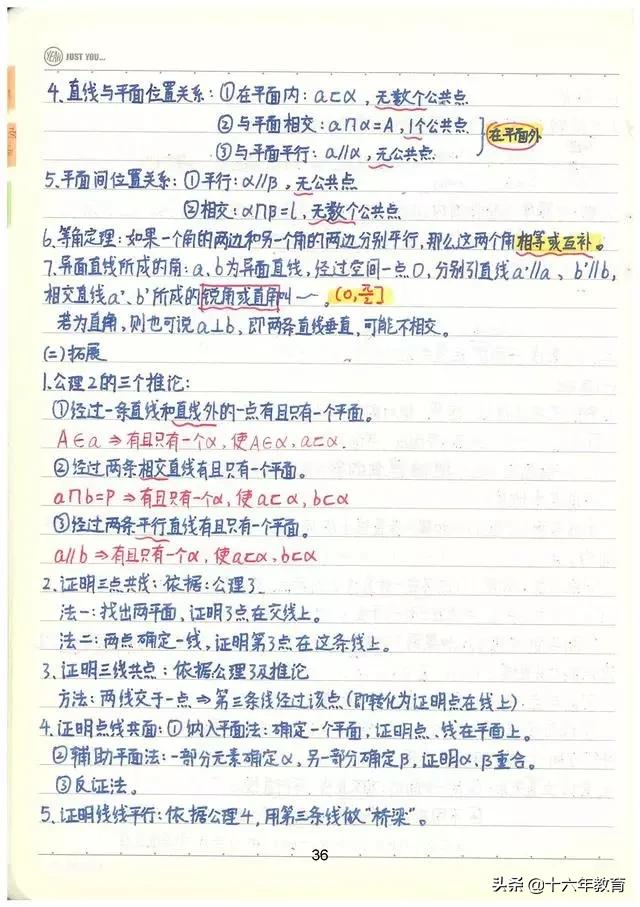 YEAH JUST YOU...
4、直线与平面位置关系:①在平面内:a⊂α,无数个公共点
②与平面相交:a∩α=A,1个公共点
在平面外
③与平面平行:a∥α,无公共点.
5、平面间位置关系:①平行:α∥β,无公共点
②相交:α∩β=l,无数个公共点
6、等角定理:如果一个角的两边和另一个角的两边分别平行,那么这两个角相等或互补。
7、异面直线所成的角:a,b为异面直线,经过空间一点O,分别引直线a'∥a、b'∥b,
相交直线a'、b'所成的锐角或直角叫~。(0,π/2]
若为直角,则也可说a⊥b,即两条直线垂直,可能不相交。
(二)拓展
1.公理2的三个推论:
①经过一条直线和直线外的一点有且只有一个平面。
A∈a⇒有且只有一个α,使A∈α,a⊂α.
②经过两条相交直线有且只有一个平面。
a∩b=P⇒有且只有一个α,使a⊂α,b⊂α
③经过两条平行直线有且只有一个平面。
a∥b⇒有且只有一个α,使a⊂α,b⊂α
2、证明三点共线:依据:公理3
法一:找出两平面,证明3点在交线上。
法二:两点确定一线,证明第3点在这条线上。
3、证明三线共点:依据公理3及推论
方法:两线交于一点⇒第三条线经过该点(即转化为证明点在线上).
4、证明点线共面:①纳入平面法:确定一个平面,证明点、线在平面上。
②辅助平面法:一部分元素确定α,另一部分确定β,证明α、β重合。
③反证法。
5、证明线线平行:依据公理4,用第三条线做"桥梁"。
36
头条@十六年教育